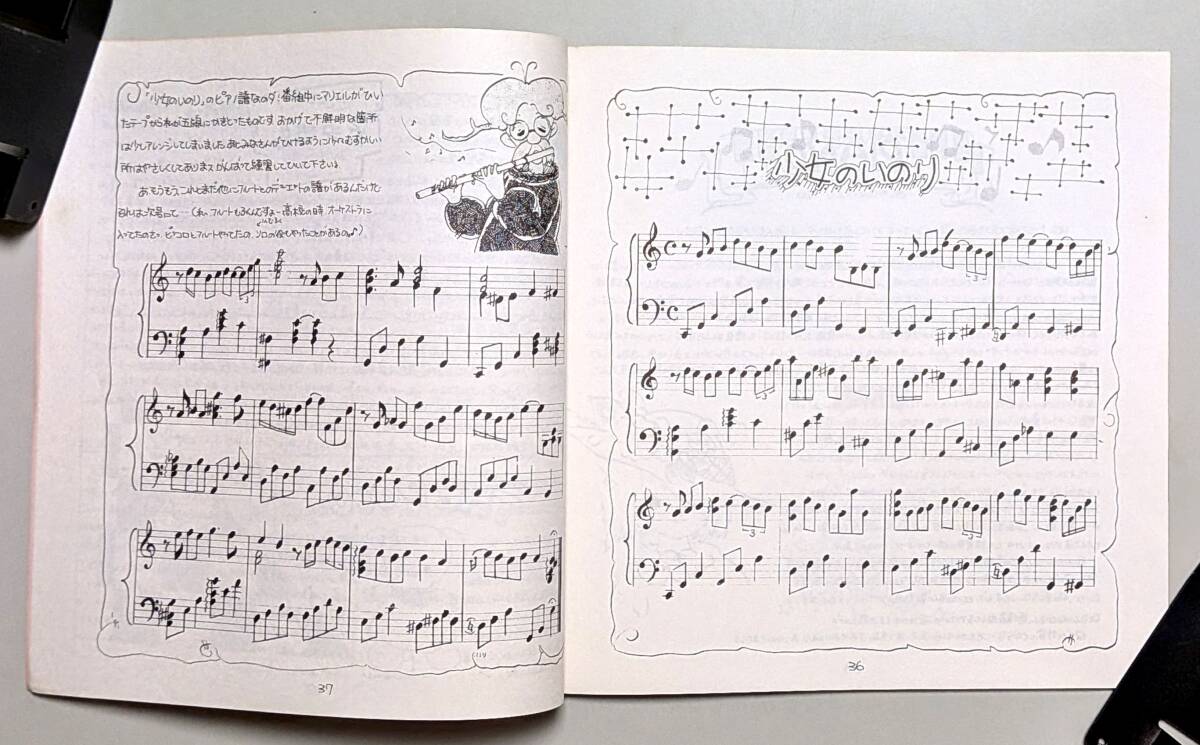 少女のいのり
36
「少女のいのり」のピアノ譜なのダ!番組中にアリエルがひい
たテープから私が五線にかきとったものです。おかげで不鮮明な箇所
は少しアレンジしてしまいました。あとみなさんがひけるようにトドへむずかしい
所はやさしくしてあります。がんばって練習していて下さいね
おもうもう、これとまた他にフルートとのデュエットの譜があるんだけど
それは次号で…(私、フルートもふくんですよー高校の時オーケストラに
入ってたので。ピッコロとフルートやってたの。ソロの役もやったことがあるの♪)
37